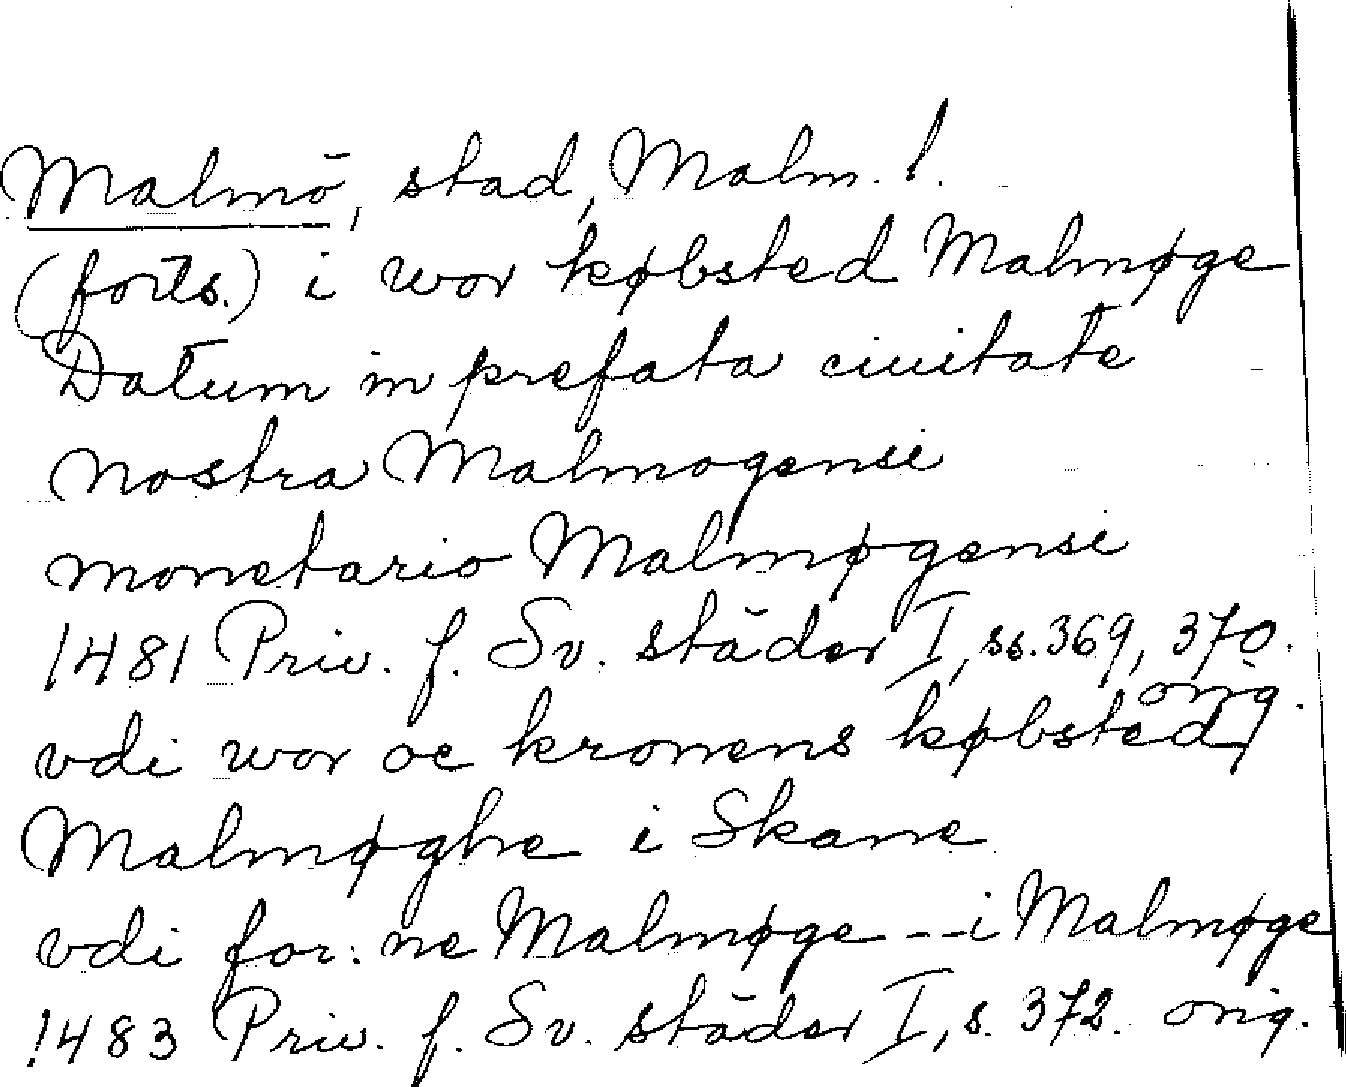 Malmö, stad, Malm. l.
(forts.) i wor købsted Malmøge
Datum in prefata ciuitate
nostra Malmogensi
monetario Malmøgensi
1481 Priv. f. Sv. städer I, ss. 369, 370. orig.
vdi wor oc kronens købsted
Malmøghe i Skane
vdi for: ne Malmøge -- i Malmøge
1483 Priv. f. Sv. städer I, s. 372. orig.